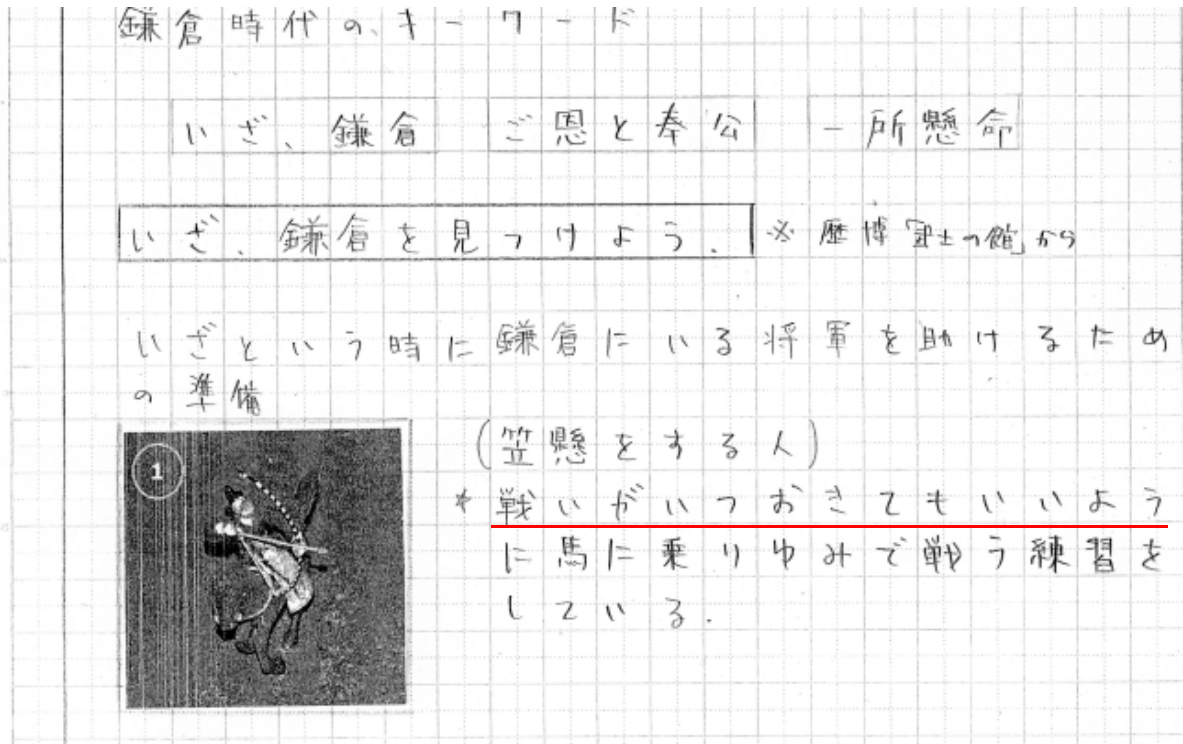 鎌倉時代の、キーワード
いざ、鎌倉 ご恩と奉公 一所懸命
いざ、鎌倉を見つけよう。 ※歴博「武士の館」から
いざという時に鎌倉にいる将軍を助けるため
の準備
(笠懸をする人)
1
*戦いがいつおきてもいいよう
に馬に乗りゆみで戦う練習を
している.